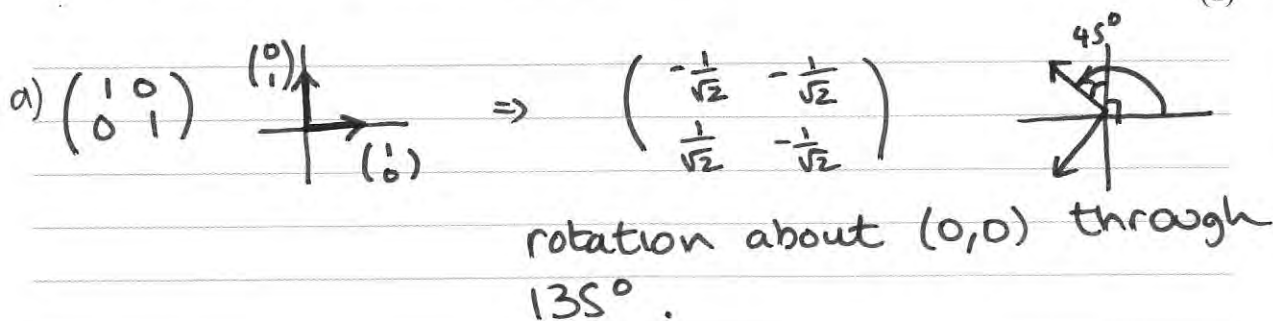 a) (1 0 0 1) (0 1) (1 0) ⇒ (-1/√2 -1/√2 1/√2 -1/√2) 45°
rotation about (0,0) through
135°.